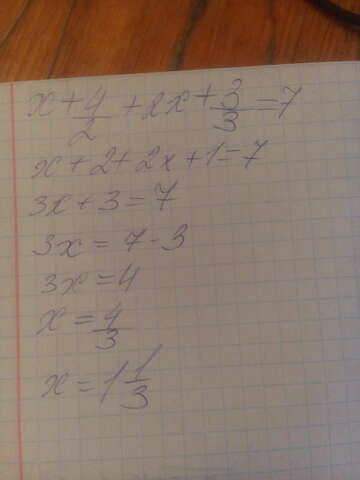 x + 4/2 + 2x + 3/3 = 7
x + 2 + 2x + 1 = 7
3x + 3 = 7
3x = 7 - 3
3x = 4
x = 4/3
x = 1 1/3